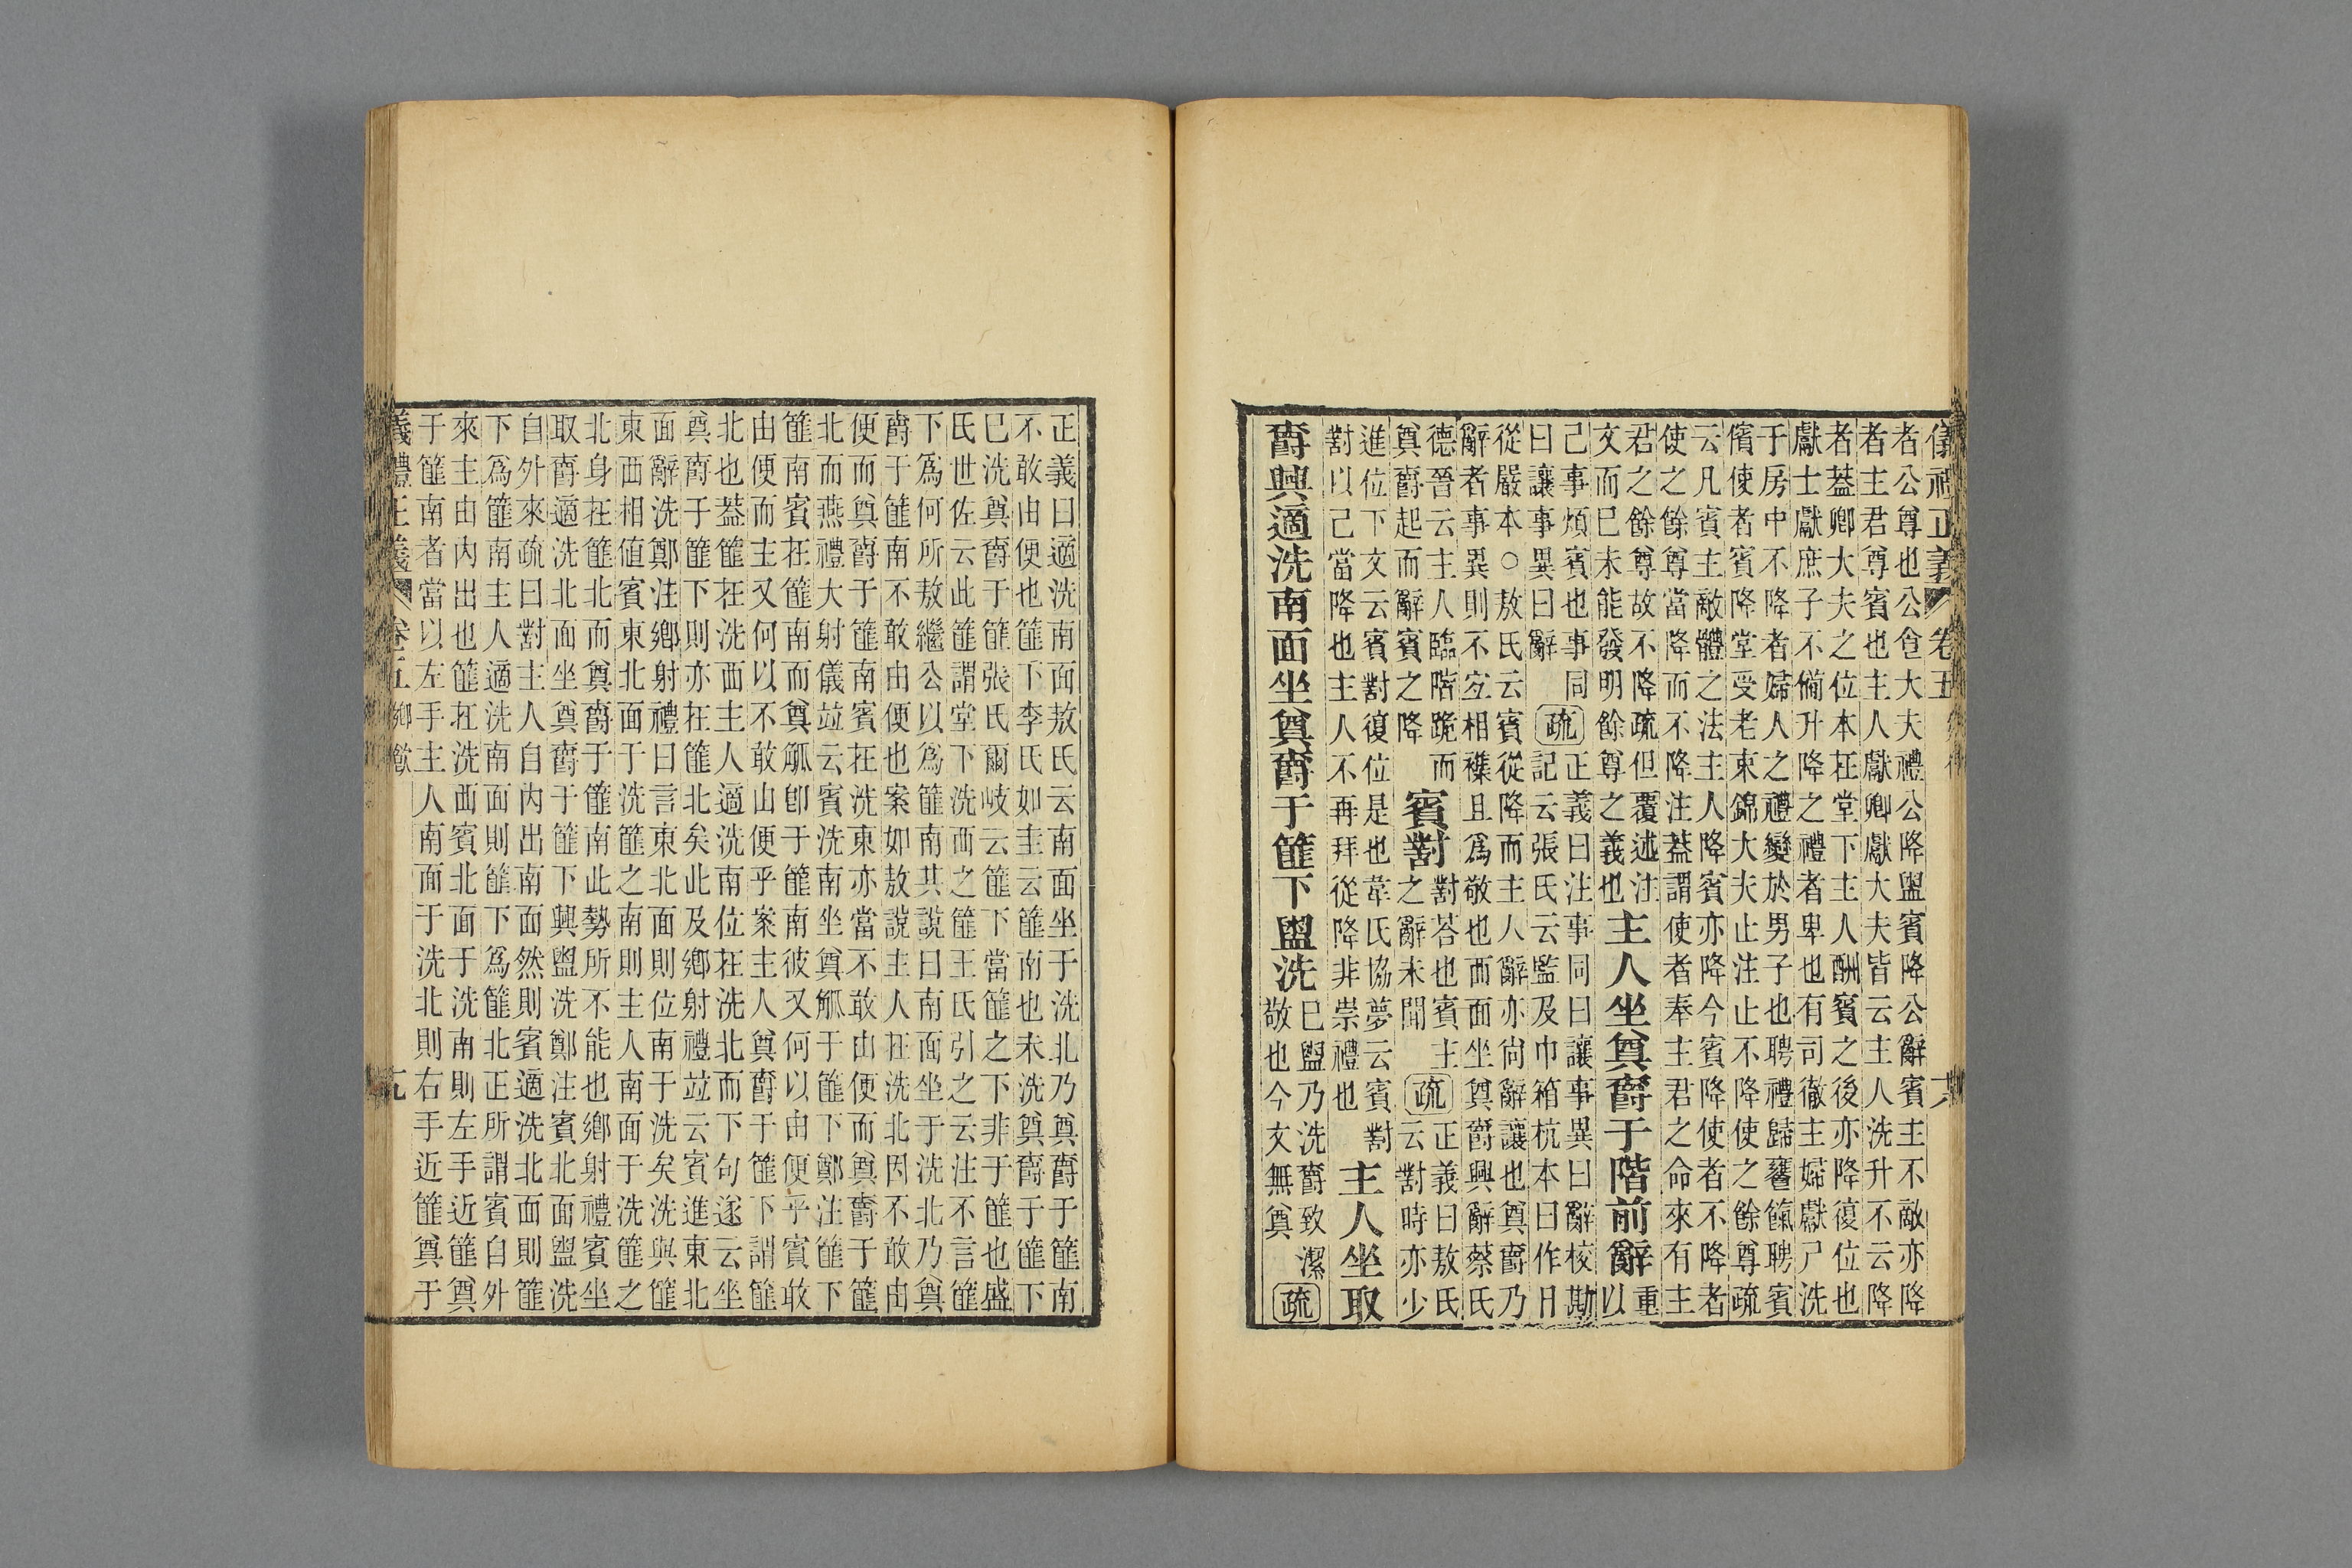 儀禮正義 卷五
者公尊也公食大夫禮公降盥賓降公辭賓主不敵亦降
者主君尊賓也主人獻卿獻大夫皆云主人洗升不云降
者蓋卿大夫之位本在堂下主人酬賓之後亦降復位也
獻士獻庶子不備升降之禮者卑也有司徹主婦獻尸洗
于房中不降者婦人之禮變於男子也聘禮歸饔餼聘賓
儐使者賓降堂受老束錦大夫止注止不降使之餘尊疏
云凡賓主敵體之法主人降賓亦降今賓降使者不降者
使之餘尊當降而不降注蓋謂使者奉主君之命來有主
君之餘尊故不降疏但覆述注
文而已未能發明餘尊之義也
主人坐奠爵于階前辭
重
以
己事煩賓也事同
曰讓事異曰辭
疏
正義曰注事同曰讓事異曰辭校勘
記云張氏云監及巾箱杭本曰作日
從嚴本○敖氏云賓從降而主人辭亦尚辭讓也奠爵乃
辭者事異則不宜相襍且爲敬也而面坐奠爵興辭蔡氏
德晉云主人臨階跪而
奠爵起而辭賓之降
賓對
對荅也賓主
之辭未聞
疏
正義曰敖氏
云對時亦少
進位下文云賓對復位是也韋氏協夢云賓對
對以己當降也主人不再拜從降非崇禮也
主人坐取
爵興適洗南面坐奠爵于篚下盥洗
已盥乃洗爵致潔
敬也今文無奠
疏
正義曰適洗南面敖氏云南面坐于洗北乃奠爵于篚南
不敢由便也篚下李氏如圭云篚南也未洗奠爵于篚下
已洗奠爵于篚張氏爾岐云篚下當篚之下非于篚也盛
氏世佐云此篚謂堂下洗西之篚王氏引之云注不言篚
下爲何所敖繼公以爲篚南其說曰南面坐于洗北乃奠
爵于篚南不敢由便也案如敖說主人在洗北因不敢由
便而奠爵于篚南賓在洗東亦當不敢由便而奠爵于篚
北而燕禮大射儀竝云賓洗南坐奠觚于篚下鄭注篚下
篚南賓在篚南而奠觚卽于篚南彼又何以由便乎賓敢
由便而主又何以不敢由便乎案主人奠爵于篚下謂篚
北也蓋篚在洗西主人適洗南位在洗北而下句遂云坐
奠爵于篚下則亦在篚北矣此及鄉射禮竝云賓進東北
面辭洗鄭注鄉射禮曰言東北面則位南于洗矣洗與篚
東西相値賓東北面于洗篚之南則主人南面于洗篚之
北身在篚北而奠爵于篚南此勢所不能也鄉射禮賓坐
取爵適洗北面坐奠爵于篚下興盥洗鄭注賓北面盥洗
自外來疏曰對主人自內出南面然則賓適洗北面則篚
下爲篚南主人適洗南面則篚下爲篚北正所謂賓自外
來主由內出也篚在洗西賓北面于洗南則左手近篚奠
于篚南者當以左手主人南面于洗北則右手近篚奠于
儀禮正義 卷五 鄉飲 九